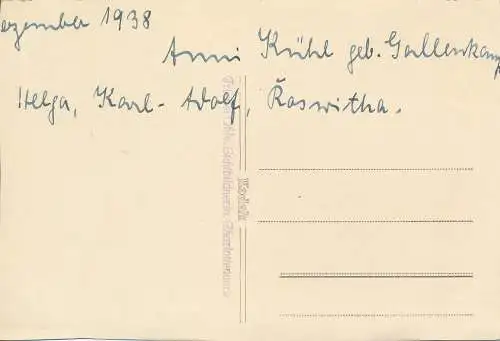 ezember 1938
Anni Kühl geb. Gallenkamp
Helga, Karl-Adolf, Roswitha.
Kodak
Lichtbildnerin